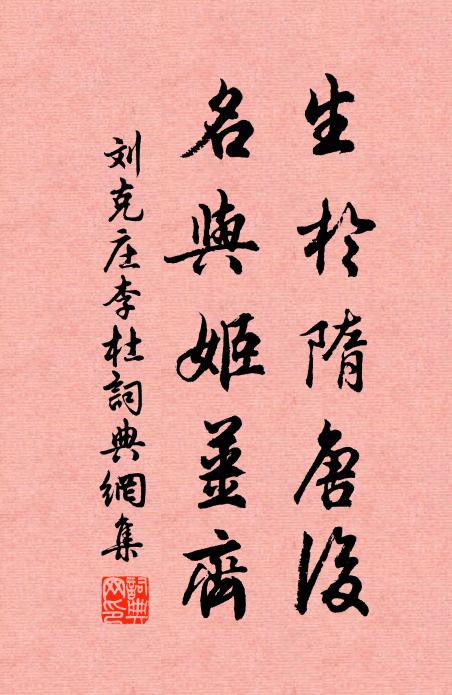 生於隋唐後
名與姬姜齊
刘克庄李杜詞典網集
詞典網印